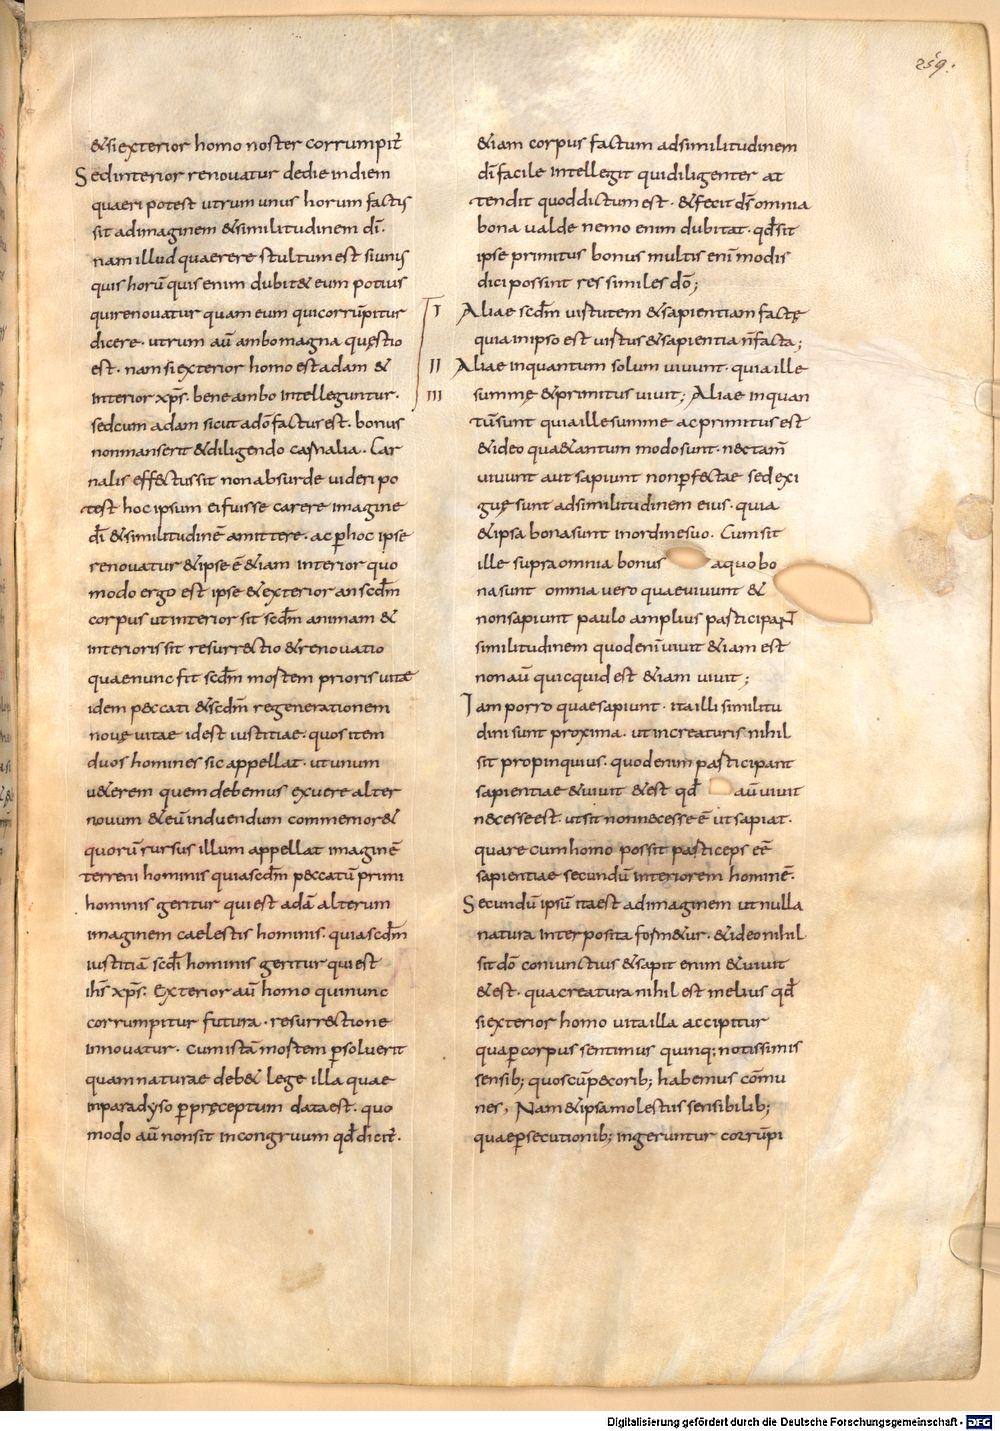 259.
&siexterior homo noster corrumpit̄
Sedinterior renouatur dedie indiem
quaeri potest utrum unus horum factus
sit adimaginem &similitudinem dī·
nam illud quaerere stultum est siunus
quis horū quis enim dubit& eum potius
quirenouatur quam eum quicorrūpitur
dicere· utrum aū ambo magna quęstio
est· nam siexterior homo est adam &
interior xp̄s· bene ambo intelleguntur·
sedcum adam sicut adō factus est· bonus
nonmanserit &diligendo carnalia· Car
nalis effectus sit non absurde uideri po
test hoc ipsum ei fuisse carere imagine
dī &similitudinē amittere· ac ꝑhoc ipse
renouatur &ipse ē &iam interior quo
modo ergo est ipse &exterior an scdm̄
corpus ut interior sit scdm̄ animam &
interioris sit resurrectio &renouatio
quae nunc fit scdm̄ mortem prioris uitae
idem peccati &scdm̄ regenerationem
nouę uitae id est iustitiae· quos item
duos homines sic appellat· ut unum
u&erem quem debemus exuere alter
nouum &eū induendum commemor&
quorū rursus illum appellat imaginē
terreni hominis quia scdm̄ peccatū primi
hominis geritur qui est adā alterum
imaginem caelestis hominis· quia scdm̄
iustitiā scdī hominis geritur qui est
ih̄s xp̄s· Exterior aū homo qui nunc
corrumpitur futura· resurrectione
innouatur· Cum istā mortem ꝑsoluerit
quam naturae deb& lege illa quae
inparadyso ꝑpręceptum data est· quo
modo aū non sit incongruum qd̄ dicit̄·
&iam corpus factum adsimilitudinem
dī facile intellegit qui diligenter at
tendit quod dictum est· &fecit d̄s omnia
bona ualde nemo enim dubitat· qd̄ sit
ipse primitus bonus multis enī modis
dici possint res similes dō;
I Aliae scdm̄ uirtutem &sapientiam factę
quia in ipso est uirtus &sapientia n̄ facta;
II Aliae inquantum solum uiuunt· quia ille
III summę &primitus uiuit; Aliae inquan
tū sunt quia ille summe ac primitus est
&ideo quae &antum modo sunt· nec tam̄
uiuunt aut sapiunt non ꝑfectae sed exi
guę sunt adsimilitudinem eius· quia
&ipsa bona sunt inordine suo· Cum sit
ille supra omnia bonus a quo bo
na sunt omnia uero quae uiuunt &
non sapiunt paulo amplius participan̄
similitudinem quod enī uiuit &iam est
non aū quicquid est &iam uiuit;
Iam porro quae sapiunt· ita illi similitu
dini sunt proxima· ut increaturis nihil
sit propinquius· quod enim participant
sapientiae &uiuit &est qd̄ aū uiuit
necesse est· ut sit non necesse ē ut sapiat·
quare cum homo possit particeps eē
sapientiae secundū interiorem hominē·
Secundū ipsū ita est adimaginem ut nulla
natura interposita form&ur· &ideo nihil
sit dō coniunctius &sapit enim &uiuit
&est· qua creatura nihil est melius qd̄
si exterior homo uita illa accipitur
qua ꝑcorpus sentimus quinq; notissimis
sensib; quos cū pecorib; habemus cōmu
nes, Nam &ipsa molestus sensibilib;
quae ꝑsecutionib; ingeruntur corrūpi
Digitalisierung gefördert durch die Deutsche Forschungsgemeinschaft - DFG